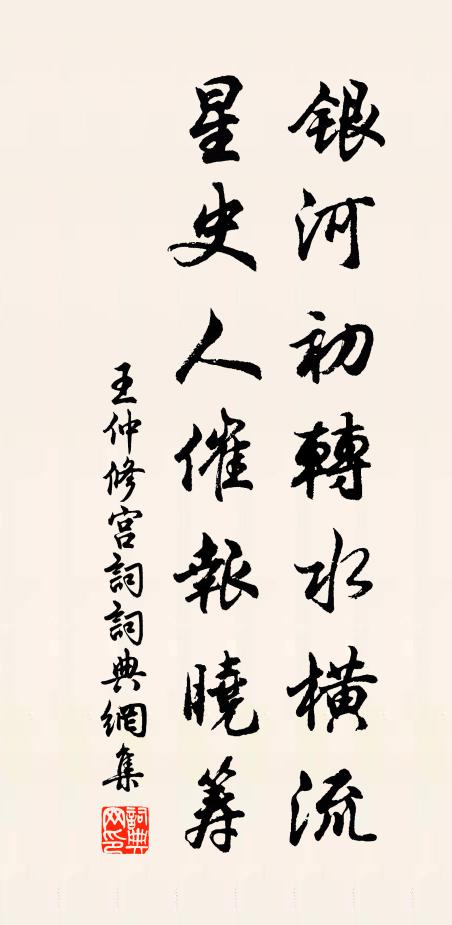 銀河初轉水橫流
星史人催報曉筹
王仲修宮詞詞典網集
詞典网印